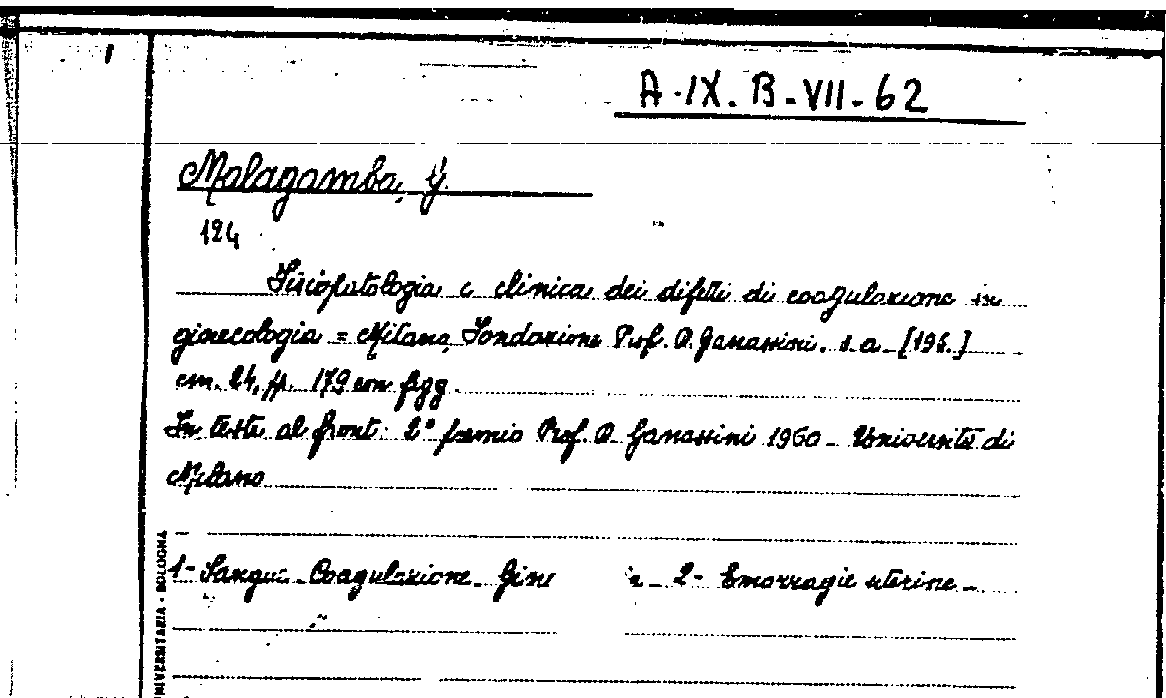 1
A.IX.B-VII-62
Malagamba, G.
124
Fisiopatologia e clinica dei difetti di coagulazione in
ginecologia = Milano, Fondazione Prof. A. Ganassini. s.a. [196.]
cm. 24, pp. 179 con figg.
In testa al front: 2° premio Prof. A. Ganassini 1960 - Università di
Milano
1- Sangue - Coagulazione - Gine - 2- Emorragie uterine -
NIVERSITARIA - BOLOGNA